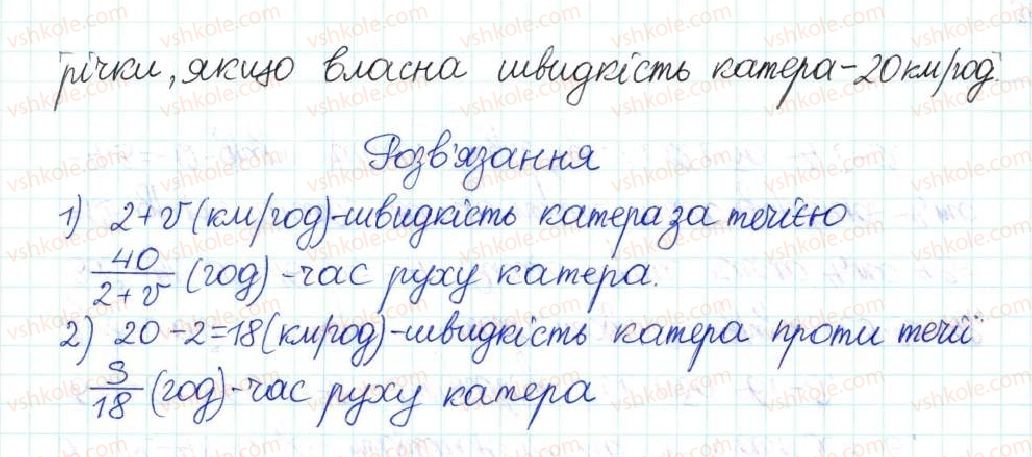 річки, якщо власна швидкість катера - 20 км/год.
Розв'язання
1) 2+v (км/год) - швидкість катера за течією
40/2+v (год) - час руху катера.
2) 20-2=18 (км/год) - швидкість катера проти течії
S/18 (год) - час руху катера